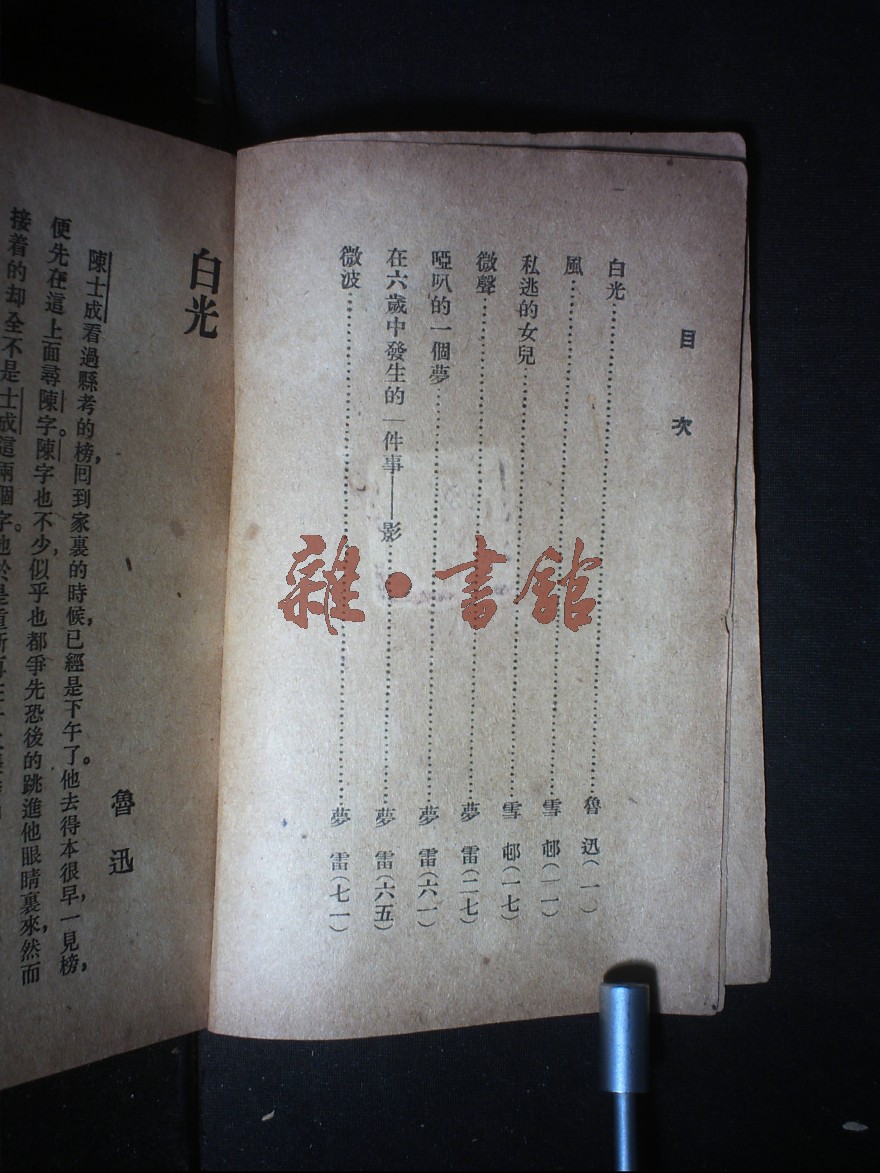 目次
白光……魯迅(一)
風……雪邨(一一)
私逃的女兒……雪邨(一七)
微聲……夢雷(二七)
啞叭的一個夢……夢雷(六一)
在六歲中發生的一件事——影……夢雷(六五)
微波……夢雷(七一)
雜·書館
白光
魯迅
陳士成看過縣考的榜,回到家裏的時候,已經是下午了。他去得本很早,一見榜,
便先在這上面尋陳字。陳字也不少,似乎也都爭先恐後的跳進他眼睛裏來,然而
接着的却全不是士成這兩個字。他於是重新再在